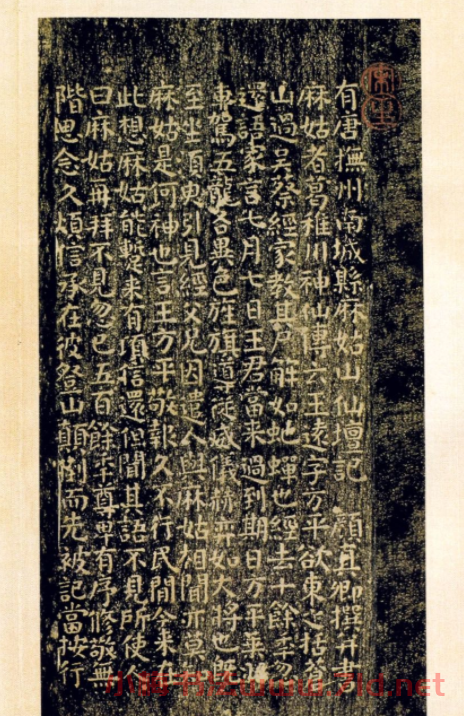 有唐撫州南城縣麻姑山仙壇記 顏真卿撰并書
麻姑者葛稚川神仙傳云王遠字方平欲東之括蒼
山過吳蔡經家教其尸解如虵蟬也經去十餘年忽
還語家言七月七日王君當来過到期日方平乗羽
車駕五龍各異色旌旗導従威儀赫弈如大将也旣
至坐須臾引見經父兄因遣人與麻姑相聞亦莫知
麻姑是何神也言王方平敬報久不行民間今来在
此想麻姑能蹔来有頃信還但聞其語不見所使人
曰麻姑再拜不見忽已五百餘年尊卑有序修敬無
階思念久煩信承在彼登山顛倒而先被記當按行
小楷书法 .7ld.net